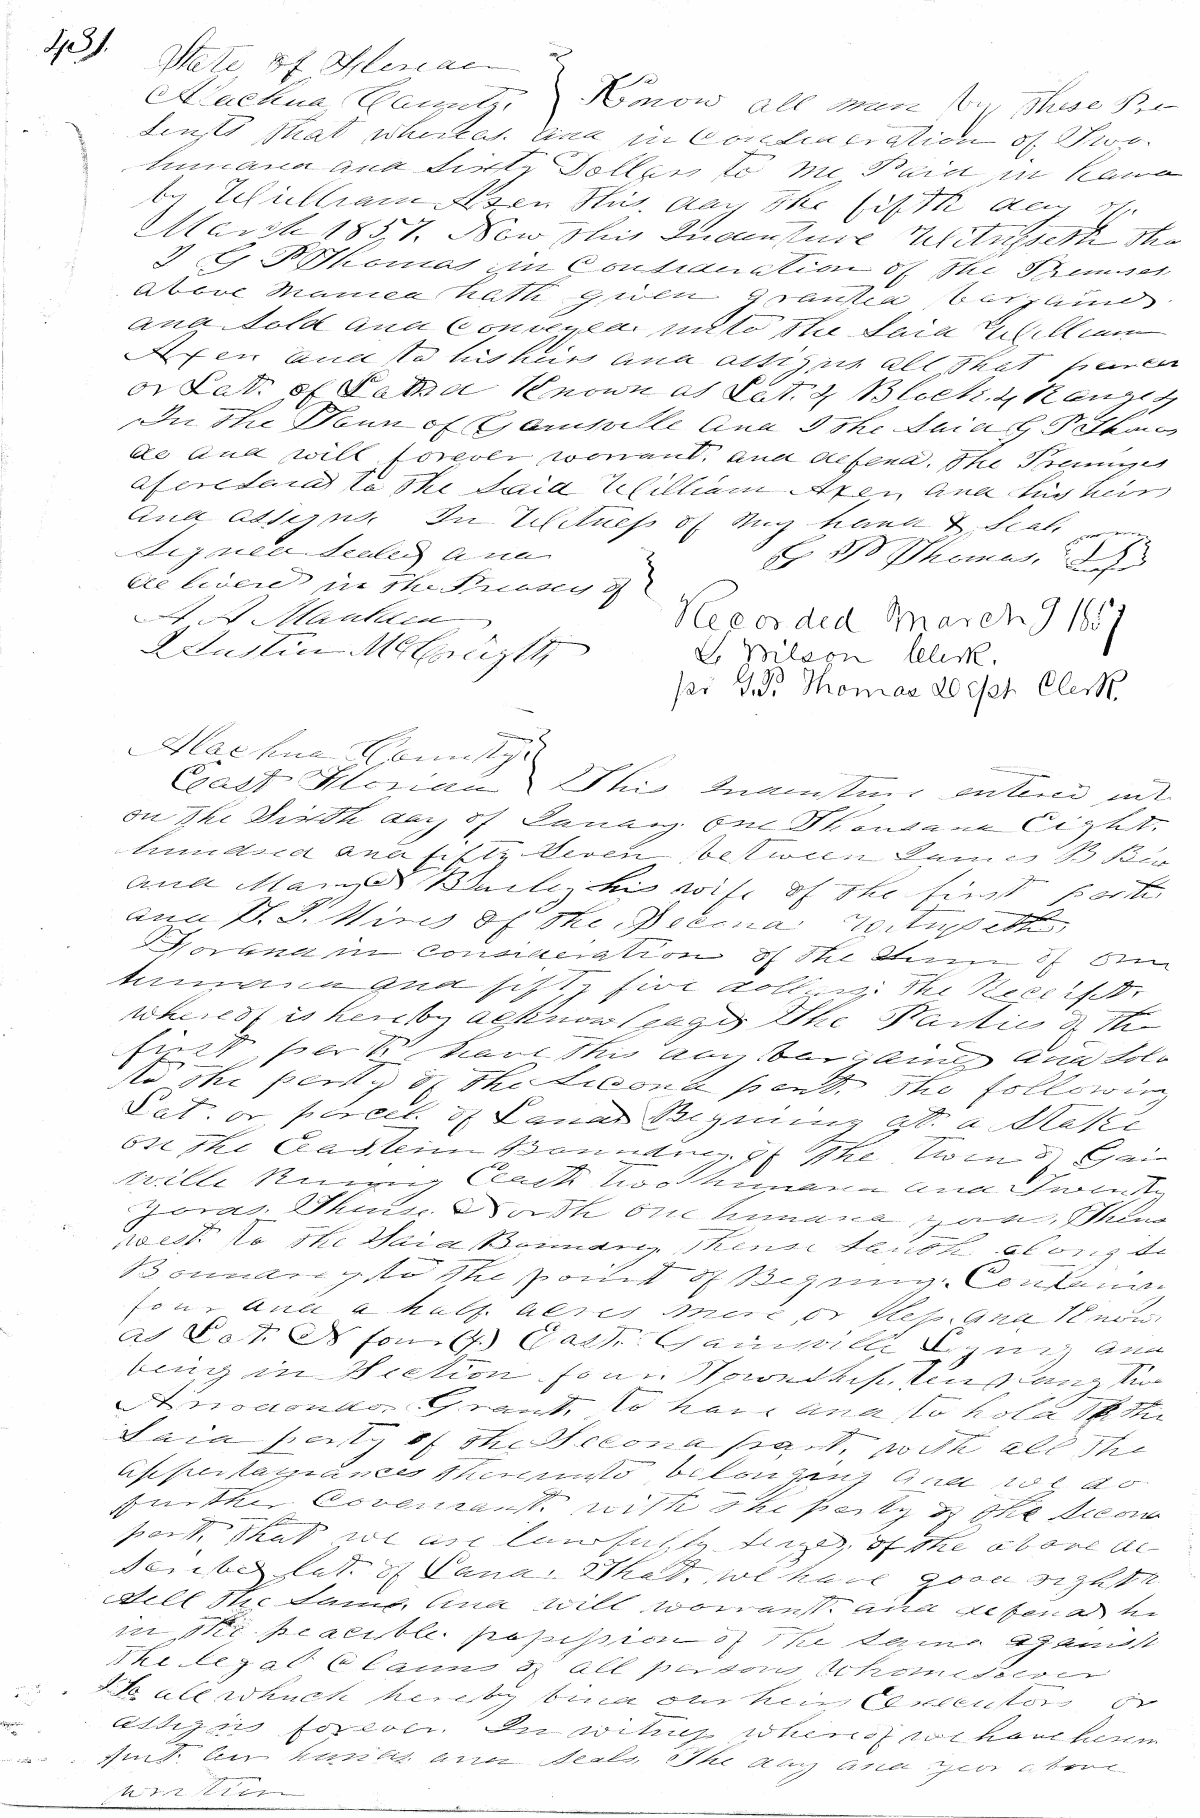 431.
State of Florida
Alachua County. } Know all men by these Pre
sents that whereas and in Consideration of Two
hundred and Sixty Dollars to me Paid in hand
by William Axen this day the fifth day of
March 1857. Now this Indenture Witnyseth tha
I G P Thomas in Consideration of the Premises
above named hath given granted bargained
and Sold and Conveyed unto the Said William
Axen and to his heirs and assigns all that parcel
or Lot of Land Known as Lot. 4 Block. 4 Range 4
In the Town of Gainsville And I the Said G P Thomas
do and will forever worrant. and defend. the Premises
aforesaid to the Said William Axen and his heirs
and assigns. In Witness of my hand & Seal.
Signed Seeled and
delivered in the Presence of
G P Thomas.
A A Mauldin
I Austin McCreight
Recorded March 9 1857
L Wilson Clerk.
pr G.P. Thomas Dept Clerk.
Alachua County.
East Florida } This Indenture entered int
on the Sixth day of January. One Thousand Eight.
hundred and fifty Seven between James B
and Mary Bailey his wife of the first part
and of the Second. witnyseth.
For and in consideration of the Sum of one
hundred and fifty five dollars. the Receipt.
whereof is hereby acknowledged The Parties of the
first part have this day bargained and Sold
to the party of the Second part. the following
Lot. or parcel. of Land Begining at. a Stake
on the Eastern Boundrey. of the town of Gain
ville Runing East two hundred and Twenty
yards. Thense North one hundred yards. Thens
west. to the Said Boundrey. Thense South along
Boundrey to the point of Begining. Containing
four and a half. acres more or less. and Know
as Lot. N four (4.) East. Gainsville Lying and
being in Section four. Township. ten
Grant. to have and to hold to the
Said party of the Second part. with all the
belonging and we do
further Covenant. with the party of the Second
part. that we are lawfully of the above de
scribed lot. of Land. That. we have good right
Sell the Same. And will worrant. and defend
in the peacible possession of the Same against
the legal Claims of all persons Whomesoever
all which hereby bind our heirs Executors or
assigns forever. In witness whereof we have
our hands and seals The day and year above